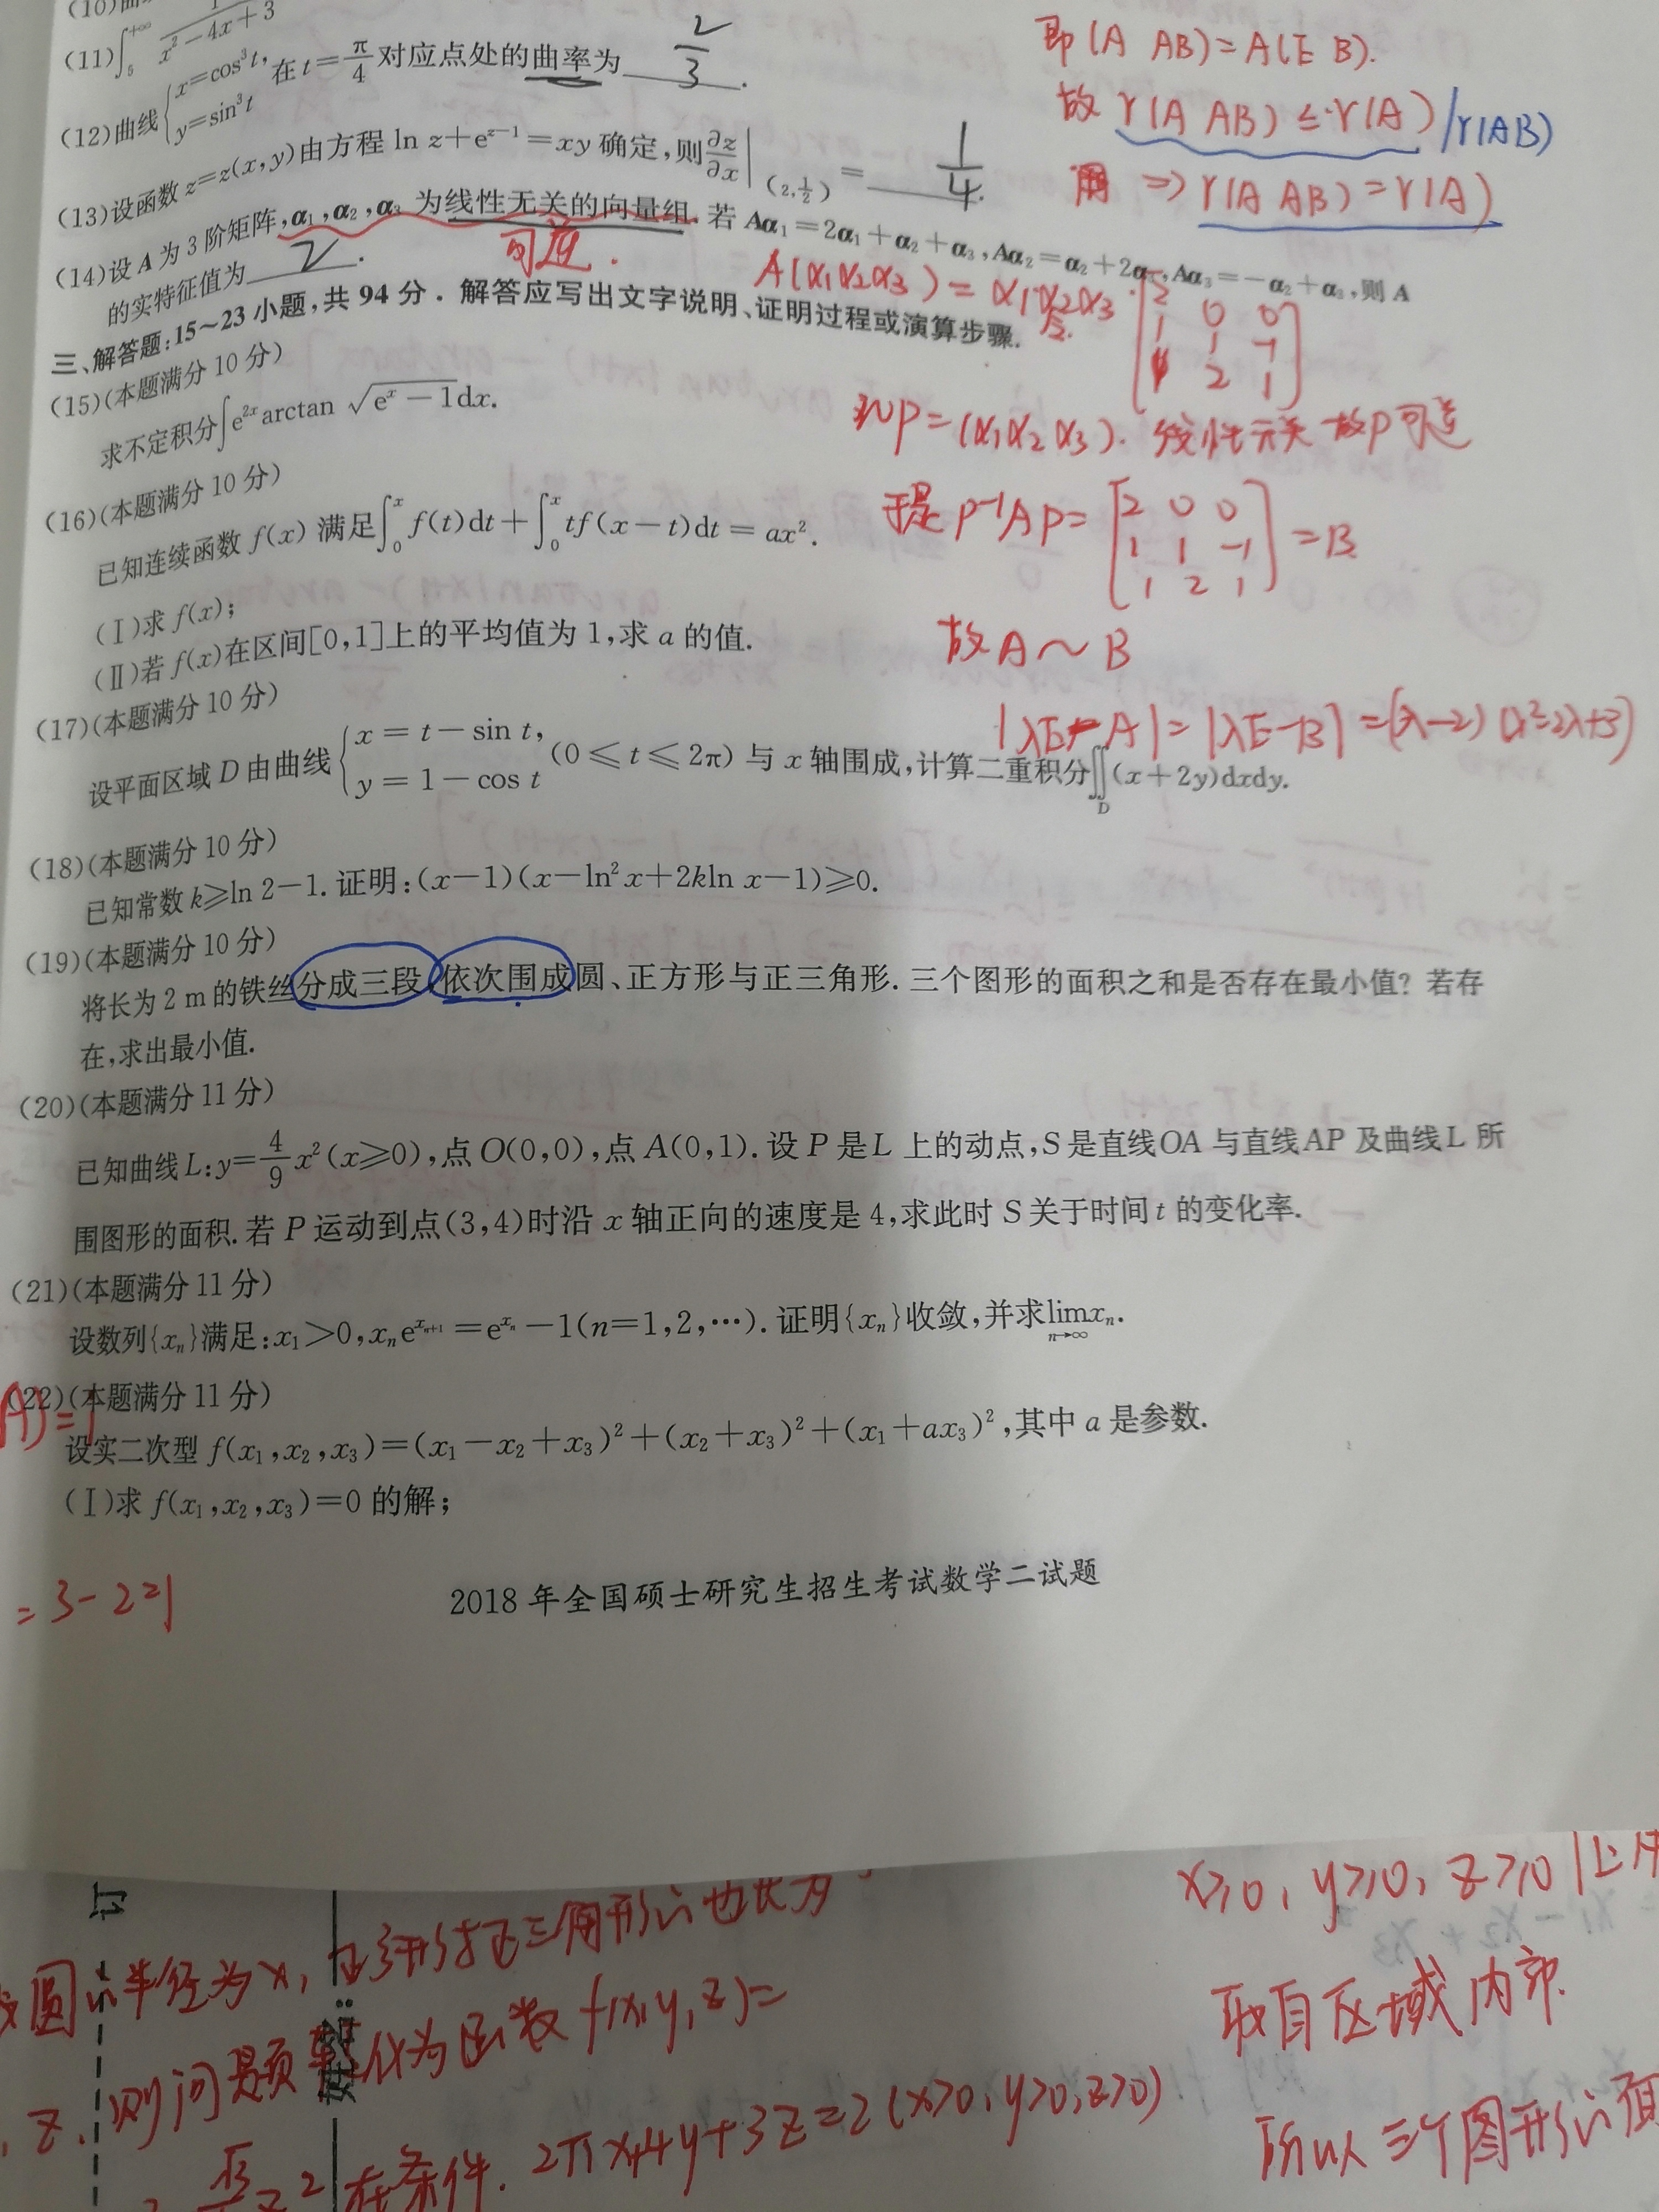 (10)
(11) ∫₅^{+∞} 1/(x²−4x+3)
(12)曲线{x=cos³t, y=sin³t 在 t=π/4 对应点处的曲率为 2/3 .
(13)设函数 z=z(x,y)由方程 ln z+e^{z−1}=xy 确定,则∂z/∂x|_{(2,1/2)}= 1/4 .
(14)设 A 为 3 阶矩阵,α₁,α₂,α₃ 为线性无关的向量组. 若 Aα₁=2α₁+α₂+α₃,Aα₂=α₂+2α₃,Aα₃=−α₂+α₃,则 A
的实特征值为 2 .
三、解答题:15~23小题,共 94 分. 解答应写出文字说明、证明过程或演算步骤.
(15)(本题满分 10 分)
求不定积分∫e^{2x}arctan √(e^x−1)dx.
(16)(本题满分 10 分)
已知连续函数 f(x) 满足∫₀^x f(t)dt+∫₀^x tf(x−t)dt=ax².
(Ⅰ)求 f(x);
(Ⅱ)若 f(x)在区间[0,1]上的平均值为 1,求 a 的值.
(17)(本题满分 10 分)
设平面区域 D 由曲线{x=t−sin t, y=1−cos t (0≤t≤2π) 与 x 轴围成,计算二重积分∬_D(x+2y)dxdy.
(18)(本题满分 10 分)
已知常数 k≥ln 2−1. 证明:(x−1)(x−ln²x+2kln x−1)≥0.
(19)(本题满分 10 分)
将长为 2 m 的铁丝分成三段,依次围成圆、正方形与正三角形. 三个图形的面积之和是否存在最小值? 若存
在,求出最小值.
(20)(本题满分 11 分)
已知曲线 L:y=4/9 x²(x≥0),点 O(0,0),点 A(0,1). 设 P 是 L 上的动点,S 是直线OA 与直线AP 及曲线L 所
围图形的面积. 若 P 运动到点(3,4)时沿 x 轴正向的速度是 4,求此时 S 关于时间 t 的变化率.
(21)(本题满分 11 分)
设数列{xₙ}满足:x₁>0,xₙe^{xₙ₊₁}=e^{xₙ}−1(n=1,2,⋯). 证明{xₙ}收敛,并求lim_{n→∞}xₙ.
(22)(本题满分 11 分)
设实二次型 f(x₁,x₂,x₃)=(x₁−x₂+x₃)²+(x₂+x₃)²+(x₁+ax₃)²,其中 a 是参数.
(Ⅰ)求 f(x₁,x₂,x₃)=0 的解;
2018 年全国硕士研究生招生考试数学二试题
即(A AB)=A(E B).
故 r(A AB)≤r(A) / r(AB)
⇒ r(A AB)=r(A)
可逆.
A(α₁α₂α₃)=α₁α₂α₃ [2 0 0; 1 1 −1; 1 2 1]
记P=(α₁α₂α₃). 线性无关 故P可逆
于是P⁻¹AP=[2 0 0; 1 1 −1; 1 2 1]=B
故A∼B
|λE−A|=|λE−B|=(λ−2)(λ²−2λ+3)
A)=1
=3−2=1
圆的半径为x, 正方形与正三角形的边长为
z, 则问题转化为函数 f(x,y,z)=
√3 z² 在条件. 2πx+4y+3z=2(x>0,y>0,z>0)
x≥0, y≥0, z≥0 上
取自区域内部.
所以三个图形的面